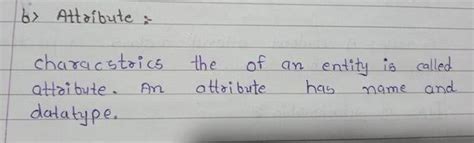 b> Attribute :-
characstrics the of an entity is called
attribute. An attribute has name and
datatype.